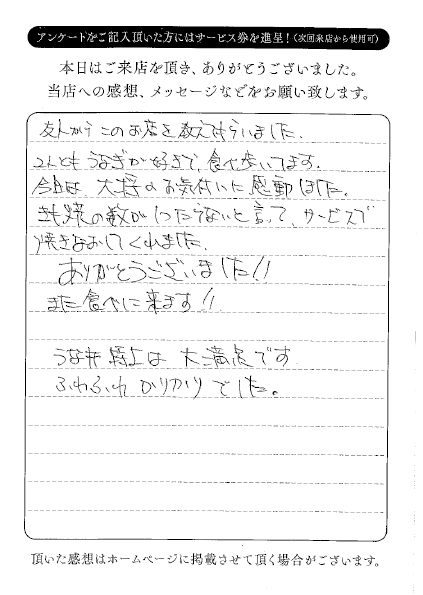 アンケートをご記入頂いた方にはサービス券を進呈!(次回来店から使用可)
本日はご来店を頂き、ありがとうございました。
当店への感想、メッセージなどをお願い致します。
友人から このお店を教えてもらいました。
2人とも うなぎが好きで、食べ歩いてます。
今日は 大将のお気付いに感動しました。
きも焼の数が 1つたりないと言って、サービスで
焼きなおしてくれました。
ありがとうございました!!
また食べに来ます!!
うな丼 特上は 大満足です
ふわふわ かりかり でした。
頂いた感想はホームページに掲載させて頂く場合がございます。